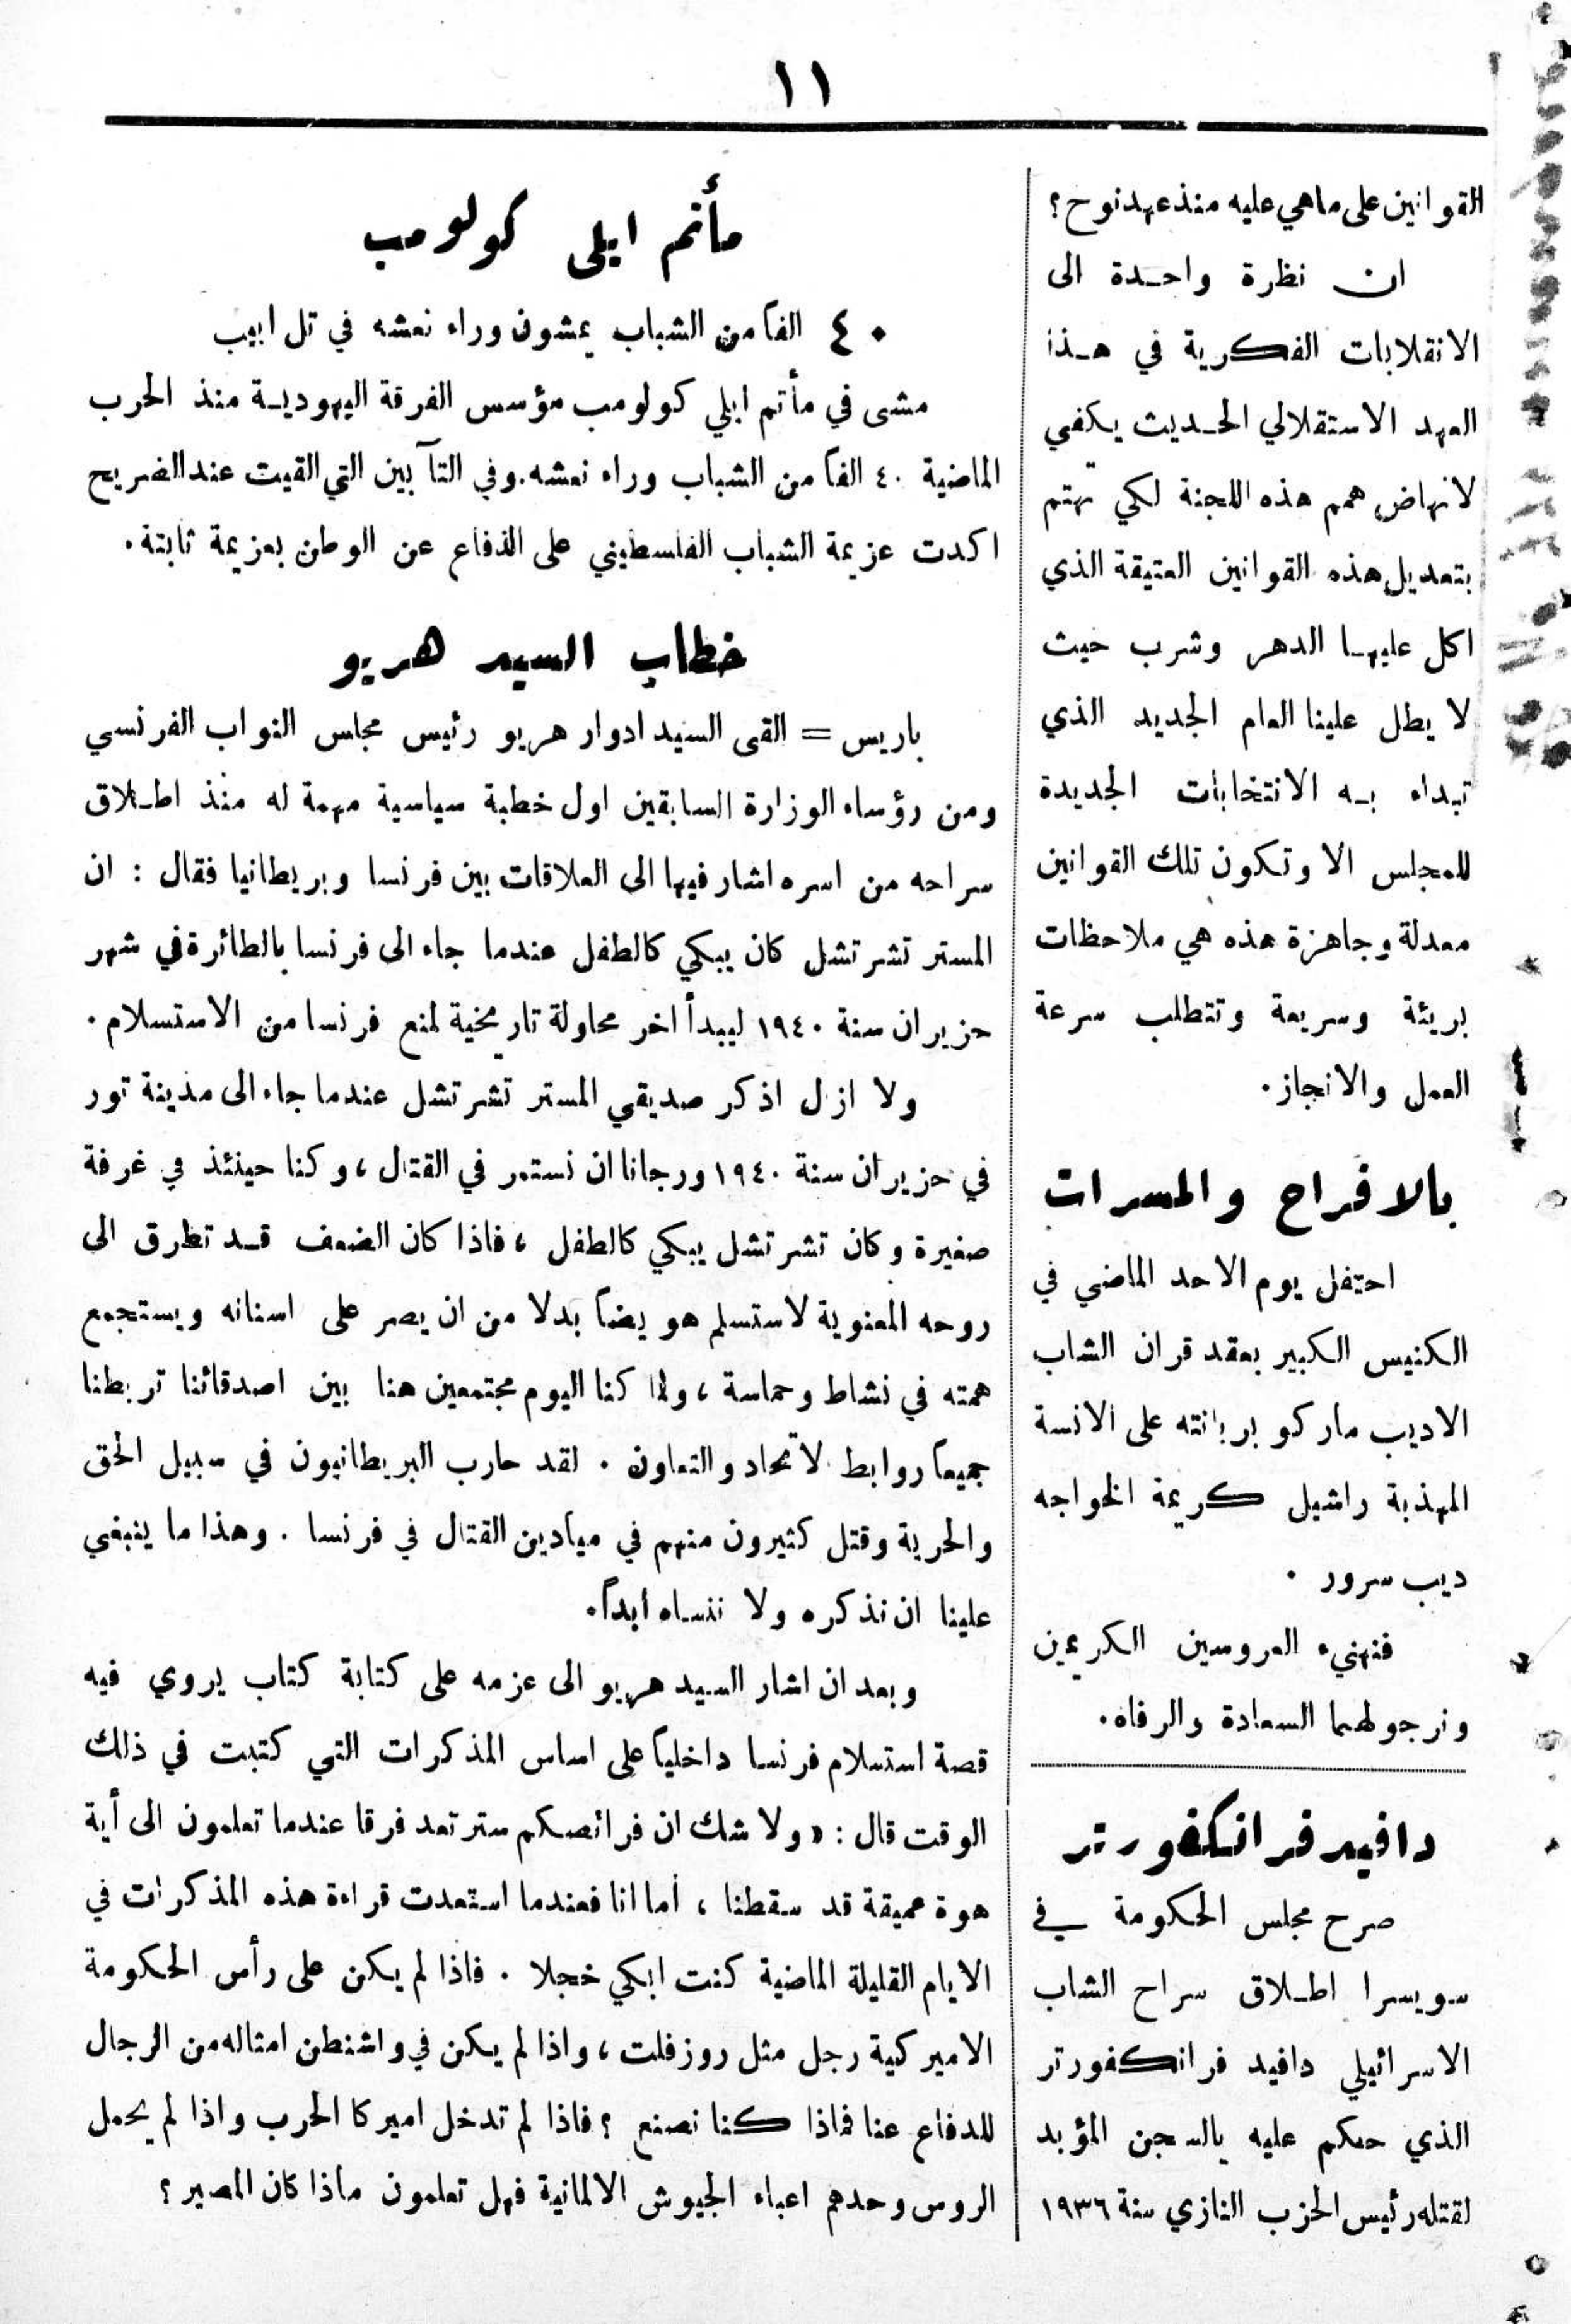 ١١
القوانين على ماهي عليه منذ عهد نوح؟
ان نظرة واحدة الى
الانقلابات الفكرية في هذا
العهد الاستقلالي الحديث يكفي
لانهاض همم هذه اللجنة لكي تهتم
بتعديل هذه القوانين العتيقة الذي
اكل عليها الدهر وشرب حيث
لا يطل علينا العام الجديد الذي
تبداء به الانتخابات الجديدة
للمجلس الا وتكون تلك القوانين
معدلة وجاهزة هذه هي ملاحظات
بريئة وسريعة وتتطلب سرعة
العمل والانجاز.
بالافراح والمسرات
احتفل يوم الاحد الماضي في
الكنيس الكبير بعقد قران الشاب
الاديب ماركو بربانته على الانسة
المهذبة راشيل كريمة الخواجه
ديب سرور .
فنهنيء العروسين الكريمين
ونرجو لهما السعادة والرفاه.
دافيد فرانكفورتر
صرح مجلس الحكومة في
سويسرا اطلاق سراح الشاب
الاسرائيلي دافيد فرانكفورتر
الذي حكم عليه بالسجن المؤبد
لقتله رئيس الحزب النازي سنة ١٩٣٦
مأتم ايلي كولومب
٤٠ الفاً من الشباب يمشون وراء نعشه في تل ابيب
مشى في مأتم ايلي كولومب مؤسس الفرقة اليهودية منذ الحرب
الماضية ٤٠ الفاً من الشباب وراء نعشه. وفي التآبين التي القيت عند الضريح
اكدت عزيمة الشباب الفلسطيني على الدفاع عن الوطن بعزيمة ثابتة.
خطاب السيد هريو
باريس = القى السيد ادوار هريو رئيس مجلس النواب الفرنسي
ومن رؤساء الوزارة السابقين اول خطبة سياسية مهمة له منذ اطلاق
سراحه من اسره اشار فيها الى العلاقات بين فرنسا وبريطانيا فقال : ان
المستر تشرتشل كان يبكي كالطفل عندما جاء الى فرنسا بالطائرة في شهر
حزيران سنة ١٩٤٠ ليبدأ اخر محاولة تاريخية لمنع فرنسا من الاستسلام .
ولا ازل اذكر صديقي المستر تشرتشل عندما جاء الى مدينة تور
في حزيران سنة ١٩٤٠ ورجانا ان نستمر في القتال ، وكنا حينئذ في غرفة
صغيرة وكان تشرتشل يبكي كالطفل ، فاذا كان الضعف قد تطرق الى
روحه المعنوية لاستسلم هو يضاً بدلا من ان يصر على اسنانه ويستجمع
همته في نشاط وحماسة ، ولما كنا اليوم مجتمعين هنا بين اصدقائنا تربطنا
جميعاً روابط لاتحاد والتعاون . لقد حارب البريطانيون في سبيل الحق
والحرية وقتل كثيرون منهم في ميادين القتال في فرنسا . وهذا ما ينبغي
علينا ان نذكره ولا ننساه ابداً.
وبعد ان اشار السيد هريو الى عزمه على كتابة كتاب يروي فيه
قصة استسلام فرنسا داخلياً على اساس المذكرات التي كتبت في ذلك
الوقت قال : « ولا شك ان فرائصكم سترتعد فرقا عندما تعلمون الى أية
هوة عميقة قد سقطنا ، أما انا فعندما استعدت قراءة هذه المذكرات في
الايام القليلة الماضية كنت ابكي خجلا . فاذا لم يكن على رأس الحكومة
الاميركية رجل مثل روزفلت ، واذا لم يكن في واشنطن امثاله من الرجال
للدفاع عنا فماذا كنا نصنع ؟ فاذا لم تدخل اميركا الحرب واذا لم يحمل
الروس وحدهم اعباء الجيوش الالمانية فهل تعلمون ماذا كان المصير ؟